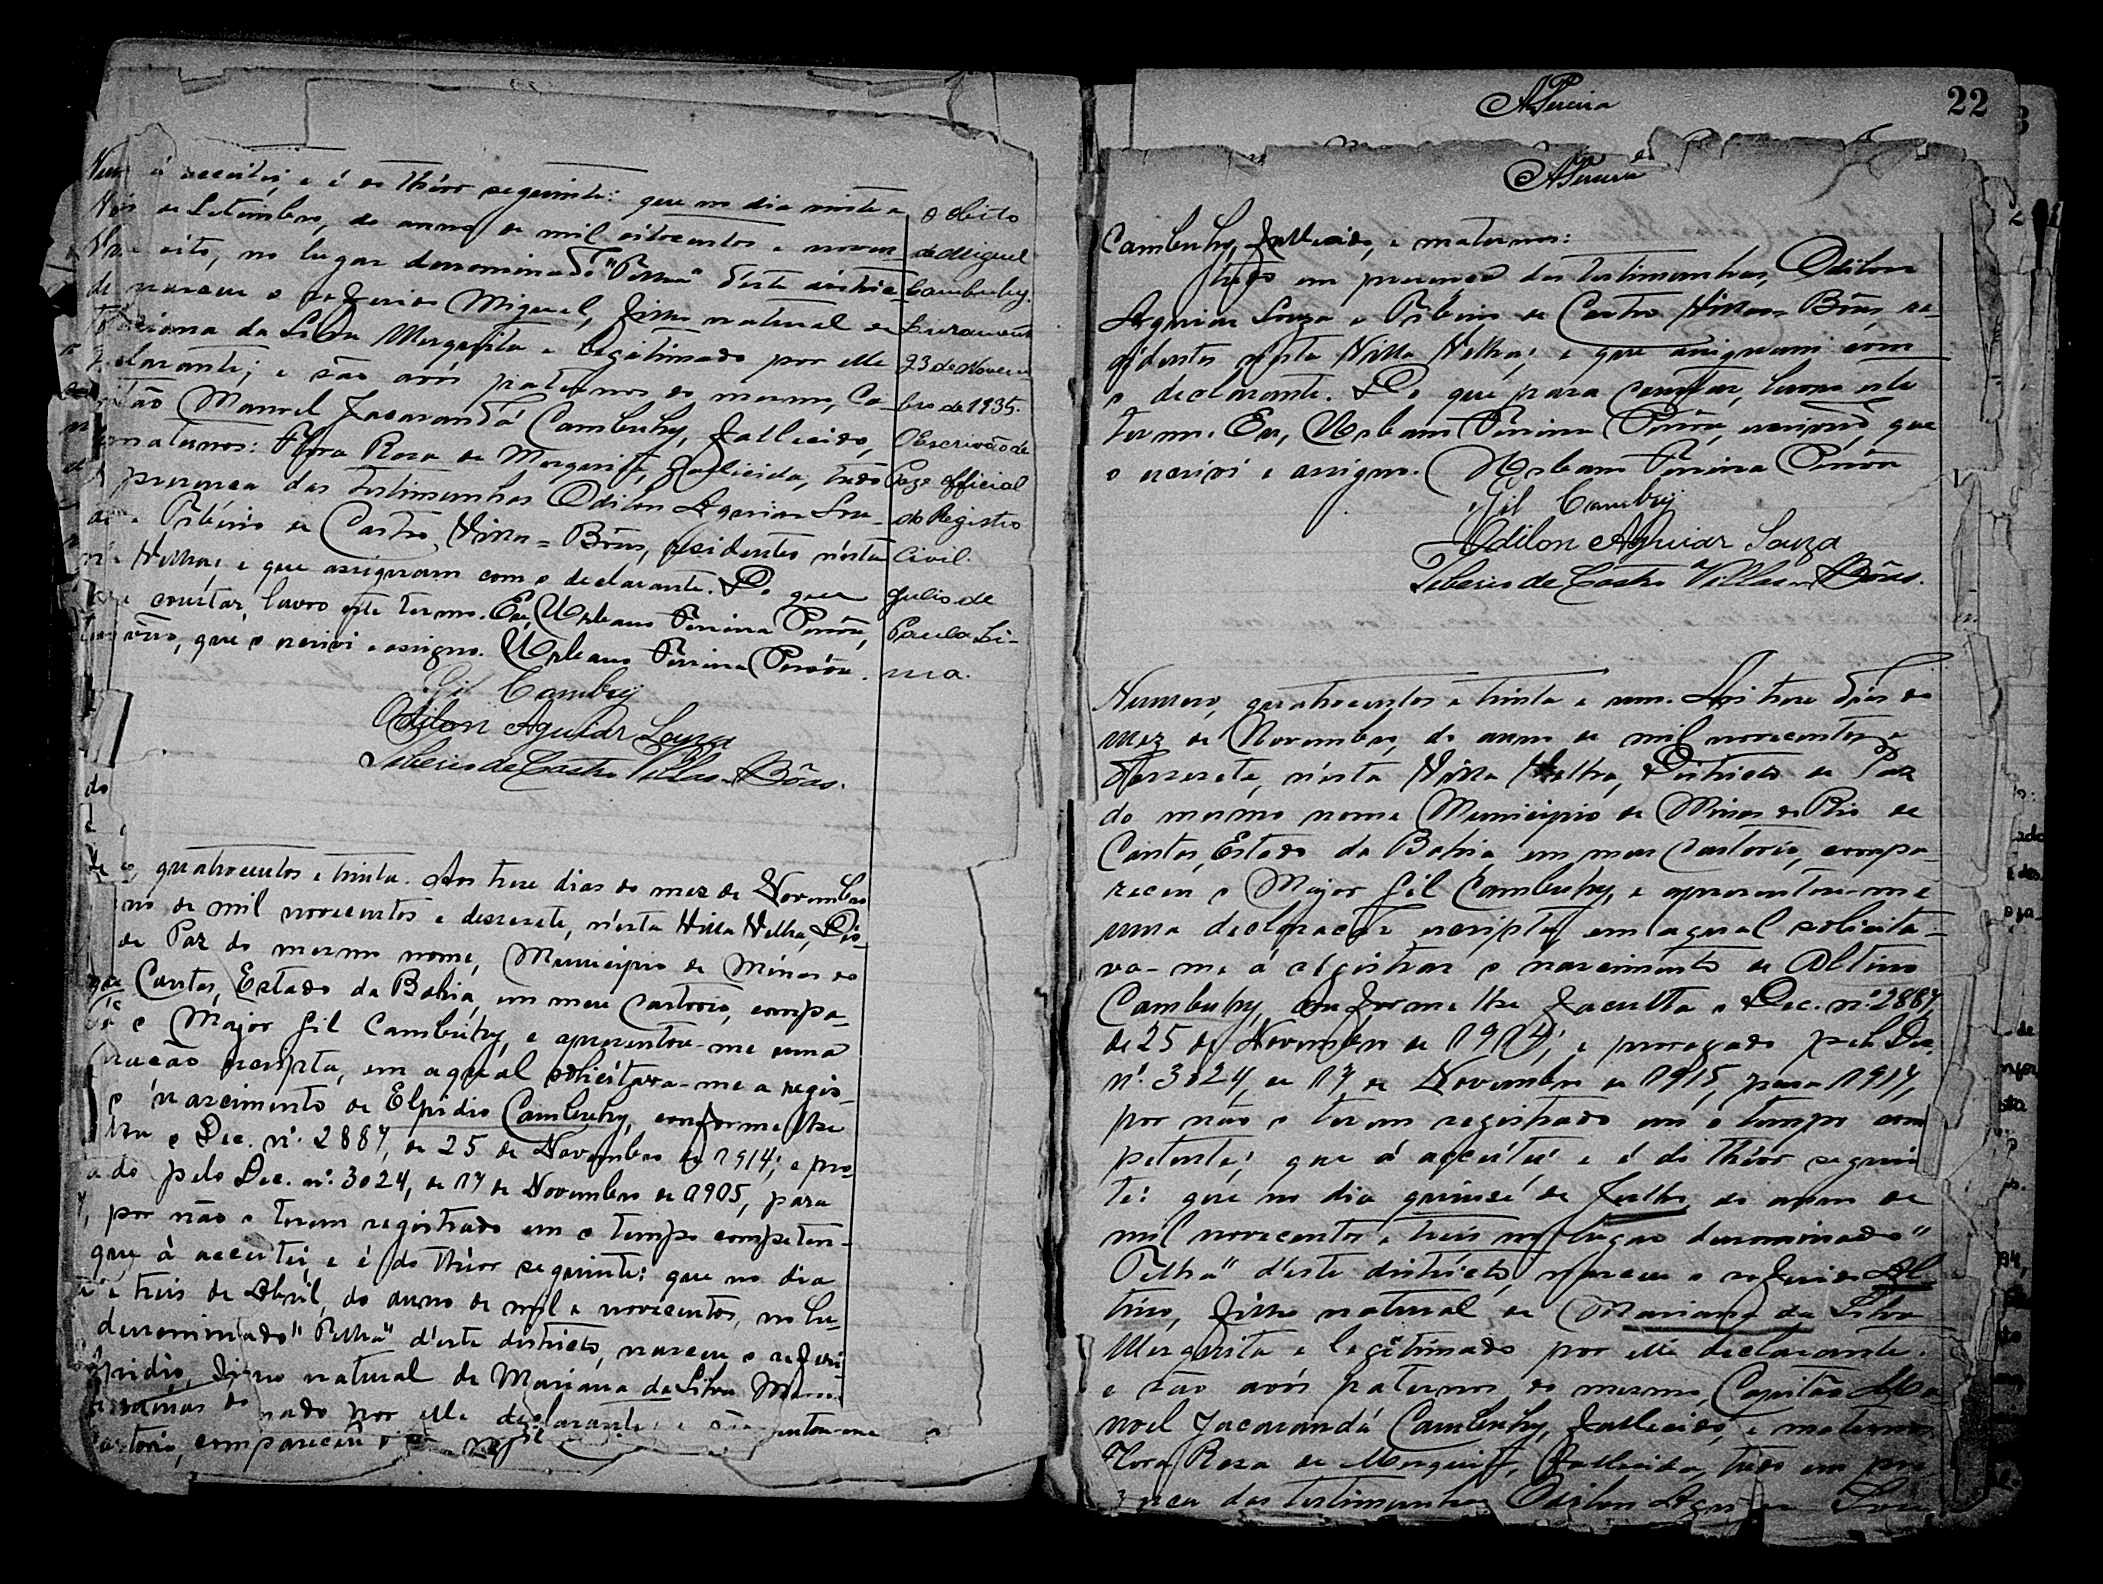 á acceitei, e é do theor seguinte: que no dia vinte e
de Setembro, do anno de mil oitocentos e noven
oito, no lugar denominado "Pelha" d'este distric
nasceu o referido Miguel, filho natural de
da Silva Merguita e legitimado por elle
clarante; e são avós paternos do mesmo, Ca-
tão Manoel Jacarandá Cambuhy, fallecido,
maternos: Flora Rosa de Merguita, fallecida, tudo
presença das testimunhas Odilon Aguiar Sou-
e Tibério de Castro Villas=Bôas, residentes n'esta
Velha, e que assignam com o declarante. Do que
constar, lavro este termo. Eu, Urbano Pereira
vão, que o escrivi e assigno. Urbano Pereira
Gil Cambuy
Odilon Aguiar Souza
Tiberio de Castro Villas-Bôas.
O obito
de Miguel
Cambuhy.
Livramento
23 de Novem-
bro de 1935.
O Escrivão de
Paz official
do Registro
Civil.
Julio de
Paula Li-
ma.
quatrocentos e trinta. Aos treze dias do mez de Novembro
no de mil novecentos e dezesete, n'esta Villa Velha, Dis
de Paz do mesmo nome, Municipio de Minas do
Contas, Estado da Bahia, em meu Cartorio, compa-
o Major Gil Cambuhy, e apresentou-me uma
ração escripta, em a qual solicitava-me a regis-
o nascimento de Elpidio Cambuhy, conforme lhe
o Dec. nº. 2887, de 25 de Novembro de 1914; e pro-
ado pelo Dec. nº. 3024, de 17 de Novembro de 1905, para
por não o terem registrado em o tempo competen-
que á acceitei, e é do theor seguinte: que no dia
e treis de Abril, do anno de mil e novecentos, no lu-
denominado "Pelha" d'este districto, nasceu o referi-
pidio, filho natural de Mariana da Silva
nado por elle declarante e são
artorio, compareceu o
APereira
22
APereira
Cambuhy, fallecido, e maternos:
tudo em presença das testimunhas, Odilon
Aguiar Souza e Tibério de Castro Villas Bôas, re-
sidentes n'esta Villa Velha; e que assignam com
o declarante. Do que para constar, lavro este
termo. Eu, Urbano Pereira escrivão que
o escrivi e assigno. Urbano Pereira
Gil Cambuy
Odilon Aguiar Souza
Tiberio de Castro Villas-Bôas.
Numero, quatrocentos e trinta e um. Aos treze dias do
mez de Novembro, do anno de mil novecentos e
dezesete, n'esta Villa Velha, Districto de Paz
do mesmo nome Municipio de Minas do Rio de
Contas, Estado da Bahia em meu Cartorio, compa-
receu o Major Gil Cambuhy, e apresentou-me
uma declaração escripta, em a qual solicita-
va-me á registrar o nascimento de Altino
Cambuhy, conforme lhe faculta o Dec. nº 2887,
de 25 de Novembro de 1914; e prorogado pelo Dec.
nº. 3024, de 17 de Novembro de 1915, para 1917,
por não o terem registrado em o tempo com
petente; que á acceitei e é do theor seguin
te: que no dia quinse de Julho do anno de
mil novecentos e treis no lugar denominado "
Pelha" d'este districto, nasceu o referido Al
tino, filho natural de Mariana da Silva
Merguita e legitimado por elle declarante.
e são avós paternos do mesmo, Capitão Ma
noel Jacarandá Cambuhy, fallecido, e maternos
Flora Rosa de Merguita, fallecida, tudo em pre
ença das testimunhas Odilon Aguiar Sou